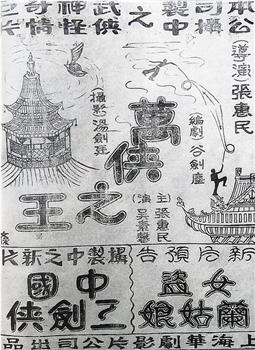 本公司攝製中之武俠神怪奇情巨片
(導演)張惠民
編劇 谷劍塵
萬俠之王
(攝影)湯劍
主演 張惠民
吳素馨
新片預告
女盜
蘭姑娘
攝製中之新片
中國
劍俠
上海華劇影片公司出品